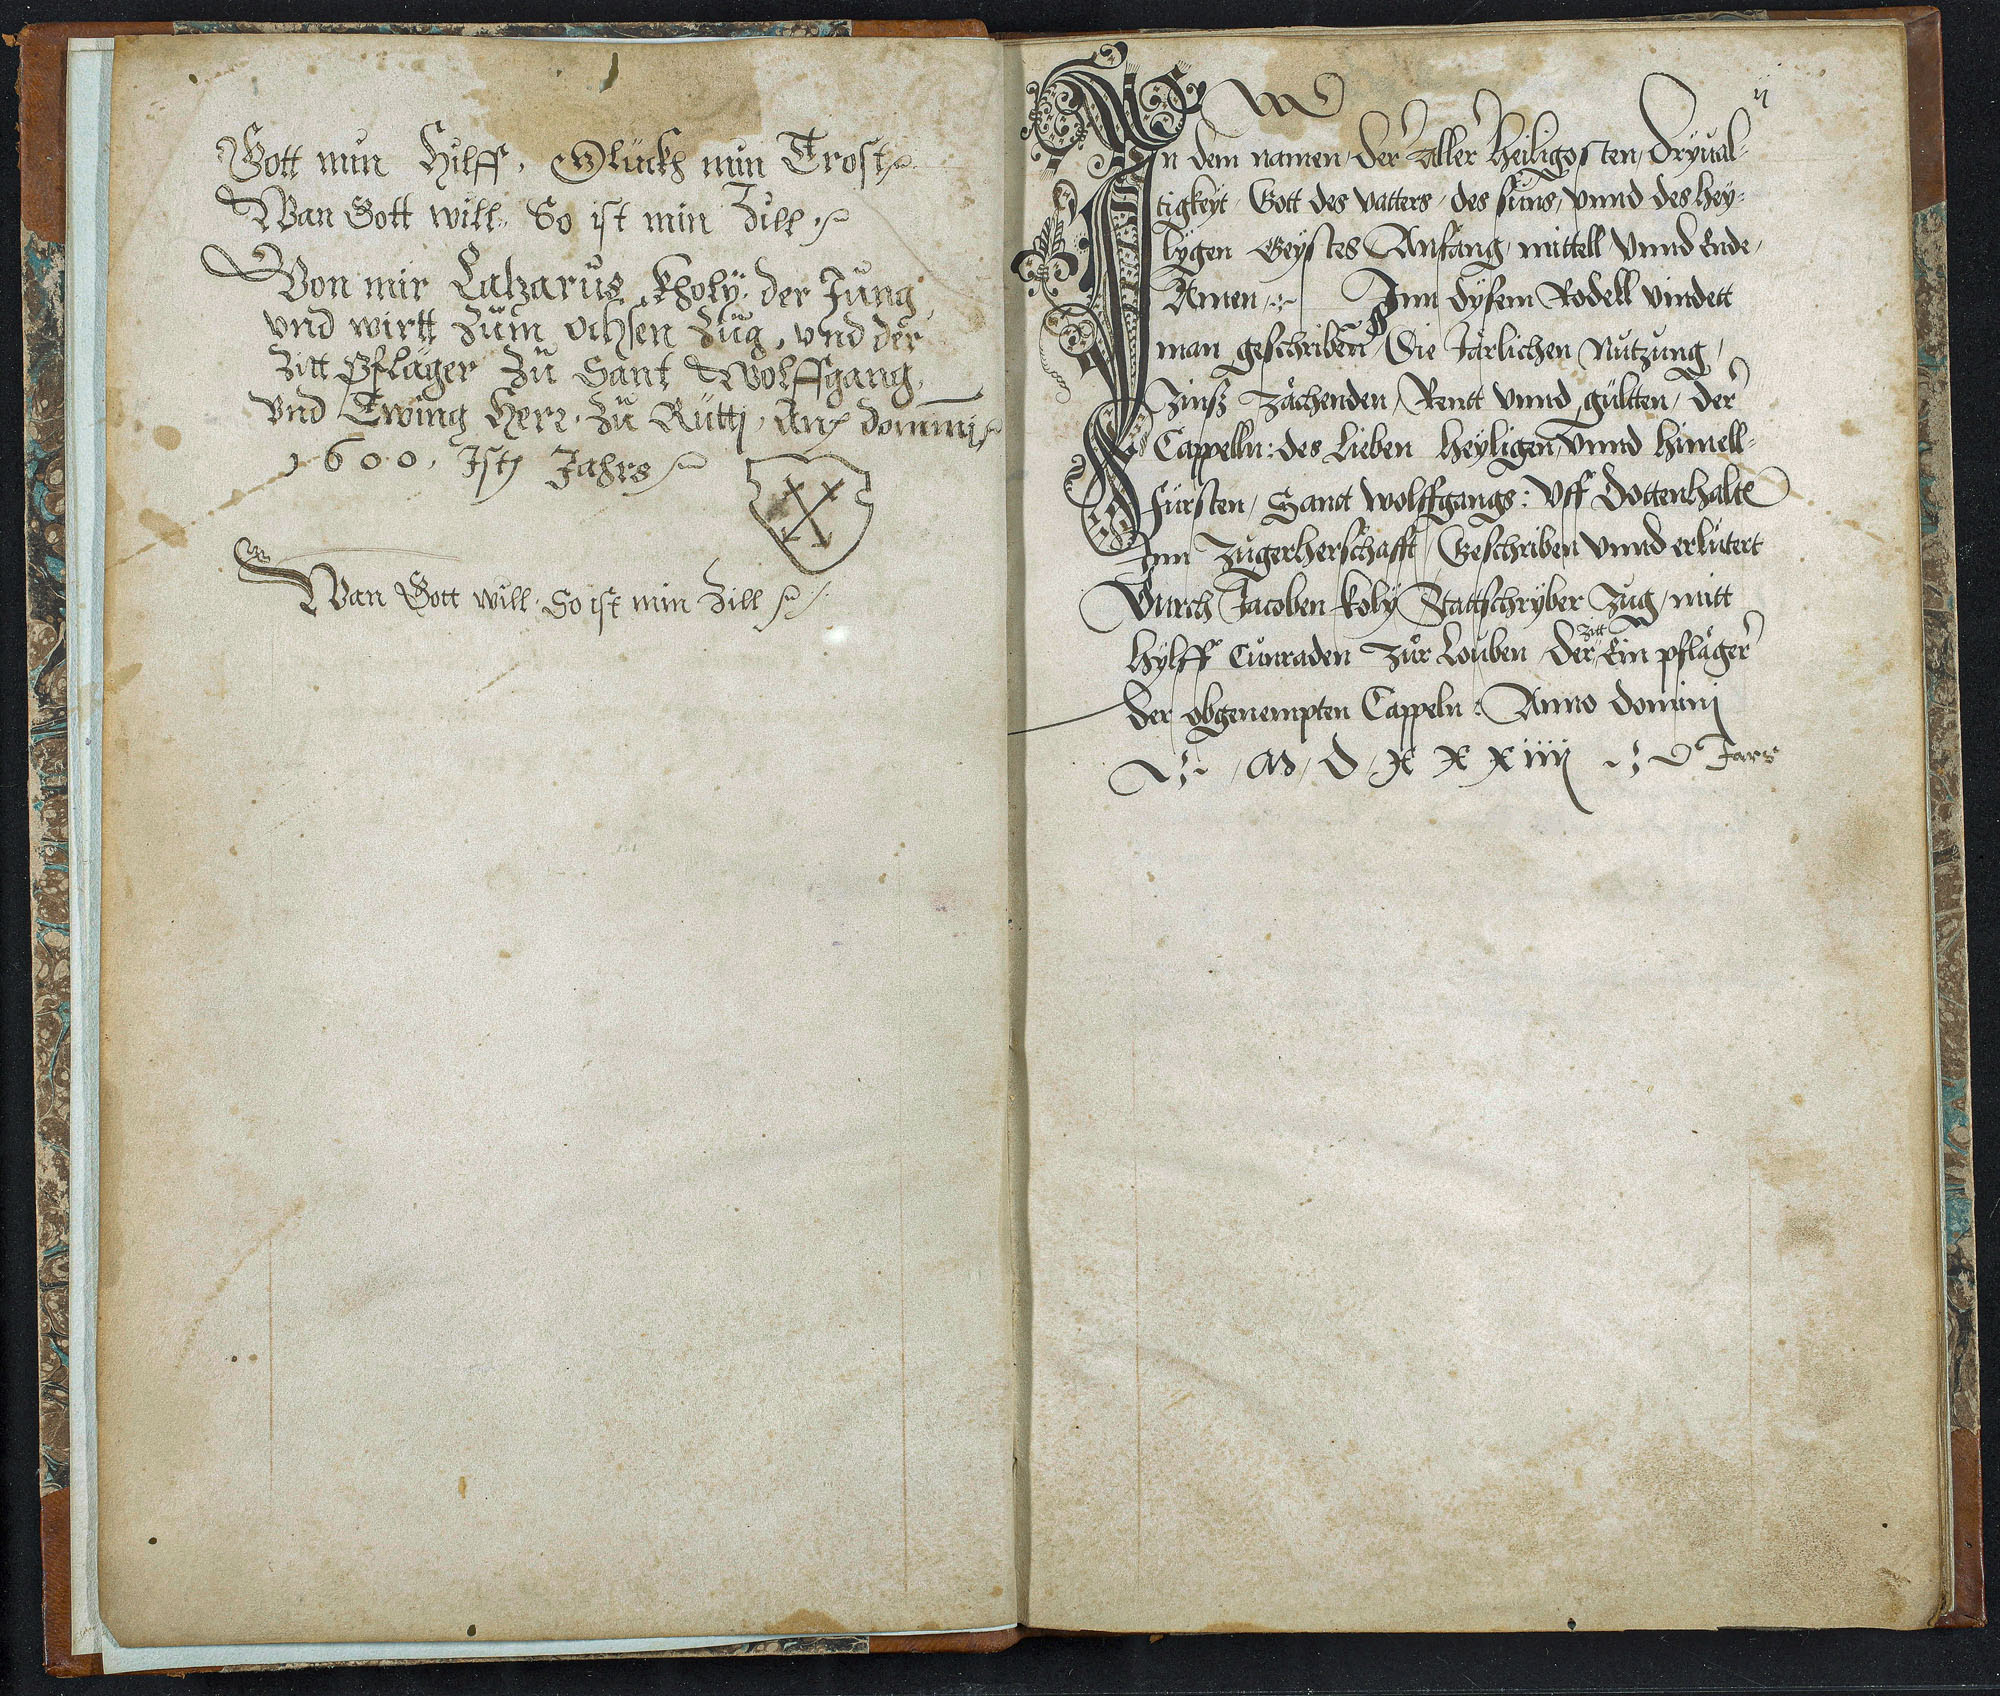 Gott min Hilff, Glückh min Trost
Wan Gott will. So ist min Zill
Von mir Latzarus Kholÿ. der Jung
vnd wirtt Zum ochsen Zug, vnd der
Zitt Pfläger Zu Sant Wolffgang,
vnd Twing Herr. Zu Rüttj, domminj
1600. Jst Jahrs
Wan Gott will. So ist min Zill
ij
In dem namen der aller heiligosten dryual-
tigkeyt Gott des vatters des suns, vnnd des hey-
lygen Geystes Anfang, mittell vnnd Ende,
Amen Inn dysem Rodell vindett
man geschriben Die Järlichen Nutzung,
Zinß Zächenden, Rentt vnnd gültten, der
Cappelln: des Lieben heyligen vnnd himell-
fürsten, Sanct wolffgangs: vff Dottenhalte
Inn Zugerherschafft Geschriben vnnd erlütert
Durch Jacoben koly Stattschryber Zug, mitt
hylff Cunraden Zur Louben der zitt Ein pfläger
der obgenempten Cappeln: Anno Dominj
M D X X X iiij Jars